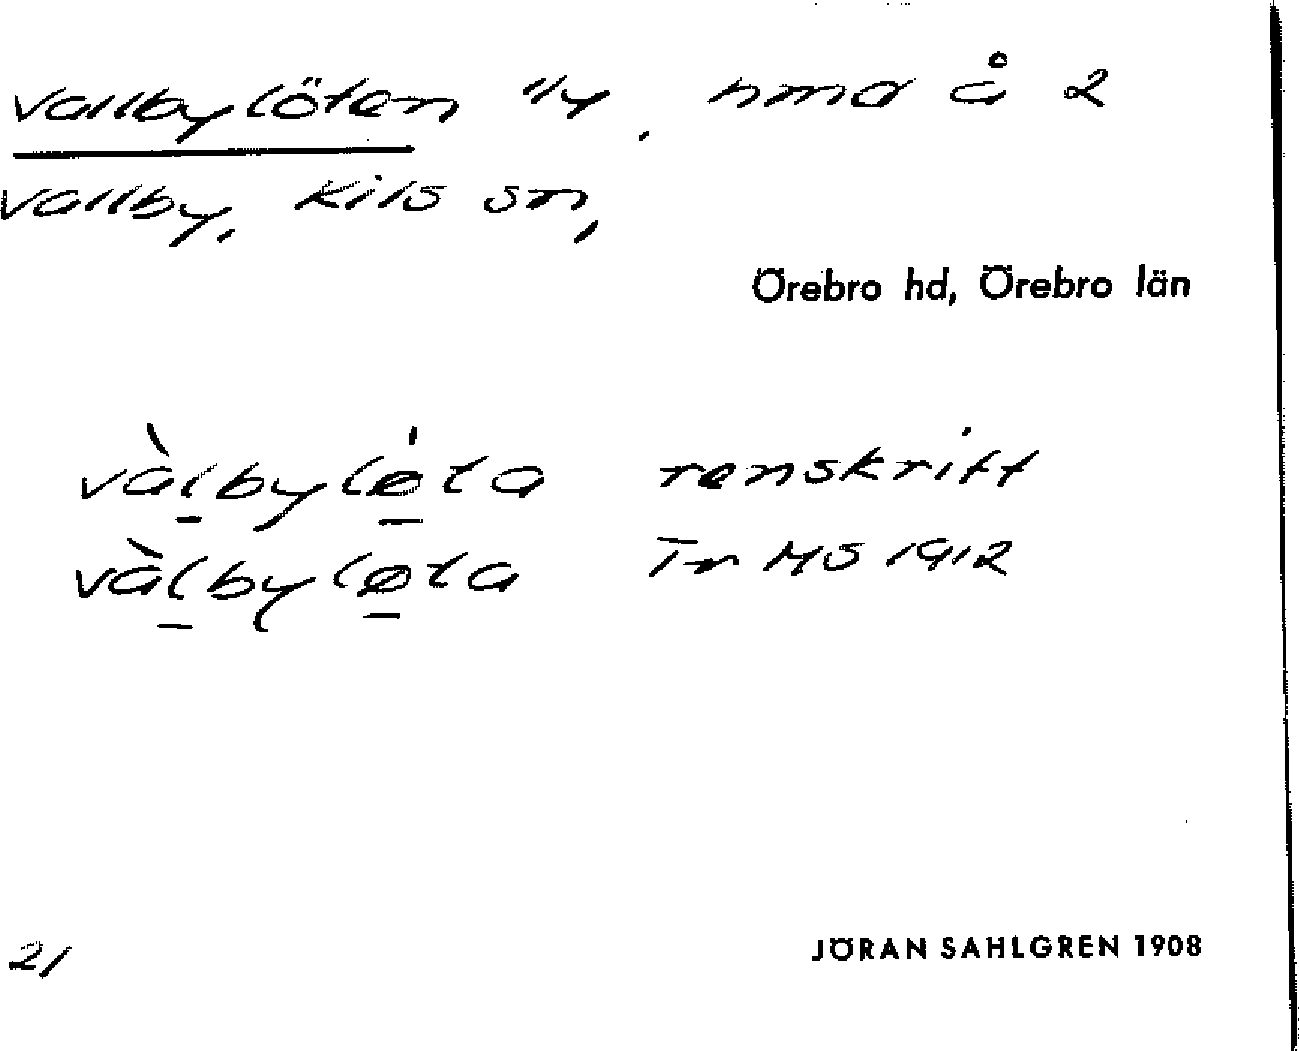 Vallbylöten 11/4, hmd å 2
Vallby, Kils sn,
Örebro hd, Örebro län
vàlbylø̀ta renskrift
vàlbyløta Tn MS 1912
21
JÖRAN SAHLGREN 1908